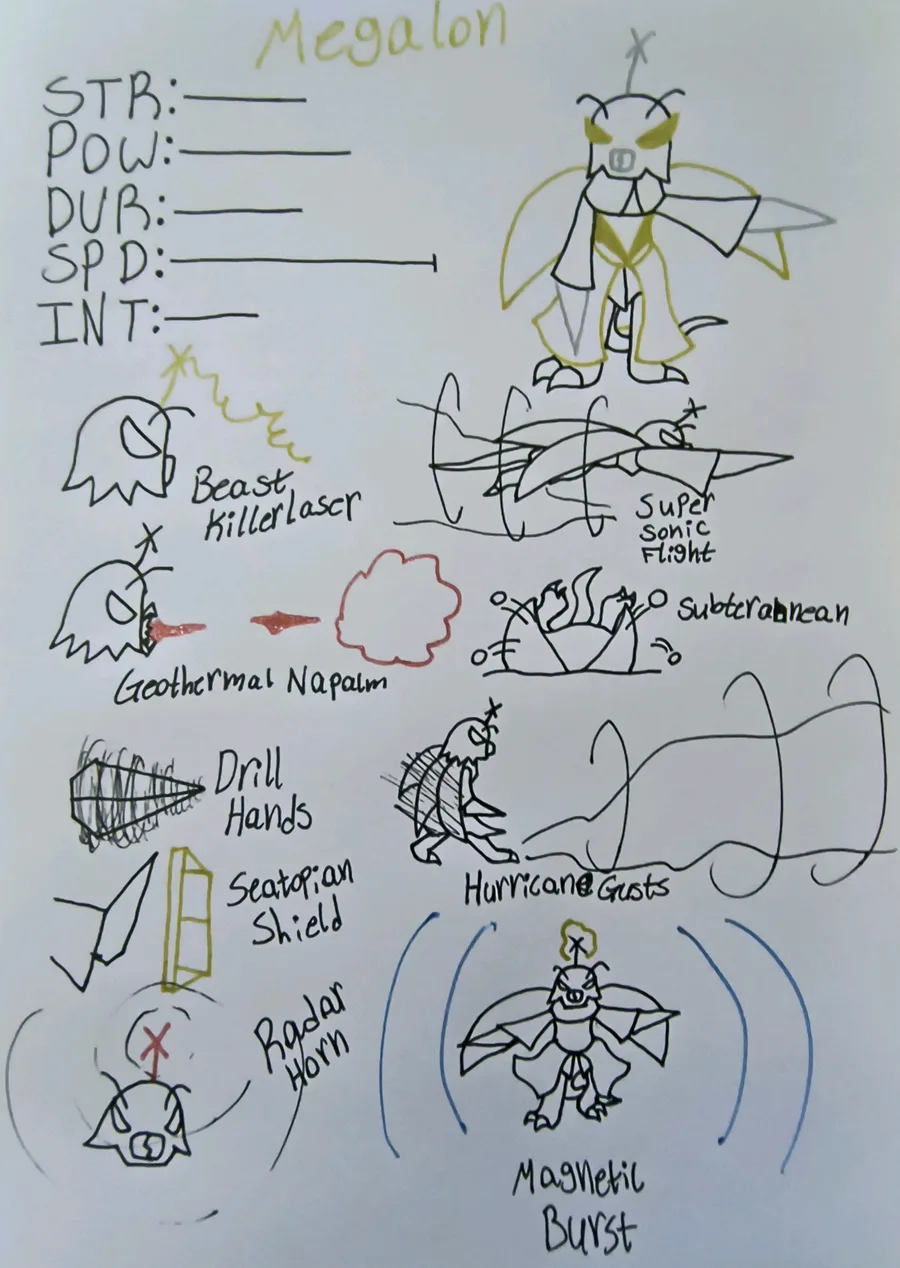 Megalon
STR:
POW:
DUR:
SPD:
INT:
Beast
Killerlaser
Super
Sonic
Flight
Geothermal Napalm
Subterabnnean
Drill
Hands
Hurricane Gusts
Seatopian
Shield
Radar
Horn
Magnetic
Burst